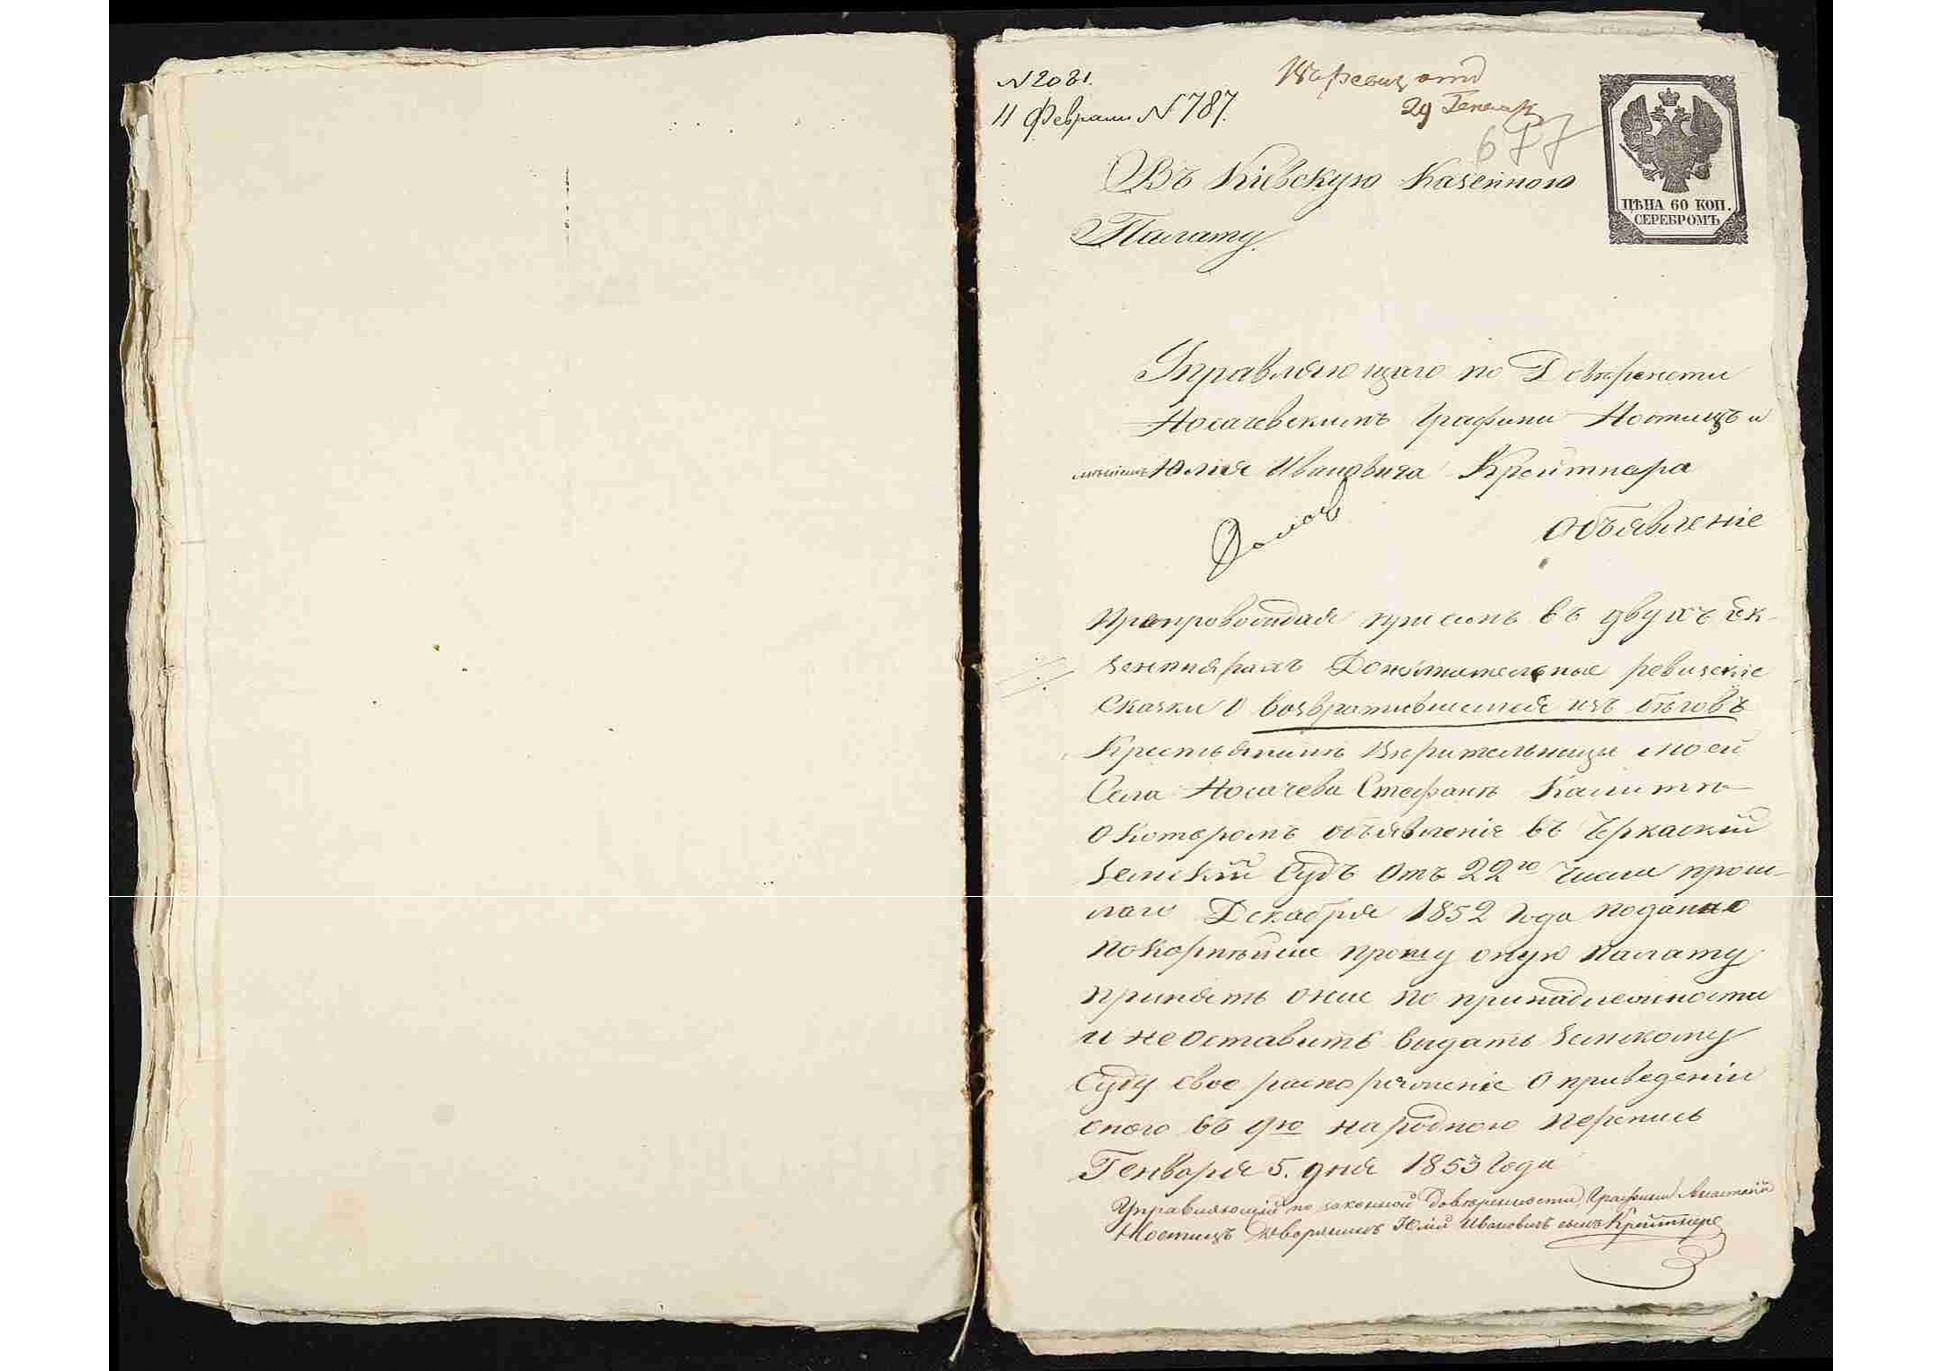 N 2081.
11 Февраля N 787.
29 Генваря
677
Въ Кіевскую Казенною
Палату.
ЦѢНА 60 КОП.
СЕРЕБРОМЪ
Управляющаго по Довѣрености
Носачевскимъ Графини Ностицъ и
мѣніемъ Юлія Ивановича Крейтнера
Объявленіе
Препровождая присемъ въ двухъ Эк-
земплярахъ Дополнительные ревизскіе
сказки о возвратившемся изъ бѣговъ
Крестьянинѣ Вѣрительницы моей
Села Носачева Стефанѣ
о Которомъ объявленіе въ Черкаский
Земский Судъ отъ 22го числа прош-
лаго Декабря 1852 года поданно
покорнѣйше прошу оную Палату
принять оние по принадлежности
и неоставить видать Земскому
Суду свое распоряженіе о приведеніи
оного въ 9ю народною перепись
Генворя 5. дня 1853 Года
Управляющій по законной довѣренности Графини
Ностицъ Дворянинъ Юлій Ивановичъ сынъ Крейтнеръ